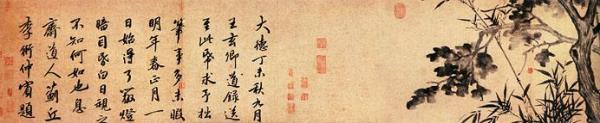 大德丁未秋九月
王玄卿道録送
至此帋求予拙
筆事多未暇
明年春正月一
日始得了嚴燈
暗目昏白日視之
不知何如也息
齋道人薊丘
李衎仲賓題